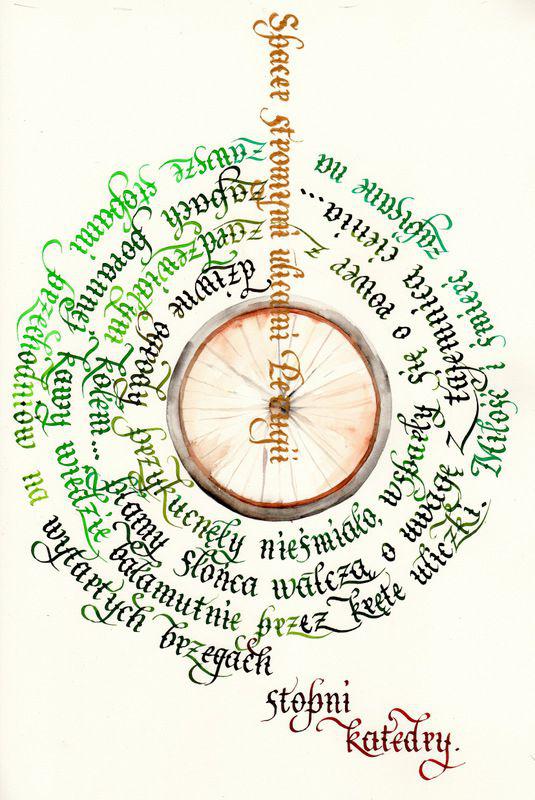 Spacer stromymi ulicami Perugii
dziwne ogrody przykucnęły nieśmiało, się o rower z
zardzewiałym kołem... plamy słońca walczą o uwagę z tajemnicą cienia...
zapach porannej kawy wiedzie bałamutnie przez kręte uliczki. Miłość i śmierć zapisane na
zawsze stopami przechodniów na wytartych brzegach
stopni
katedry.